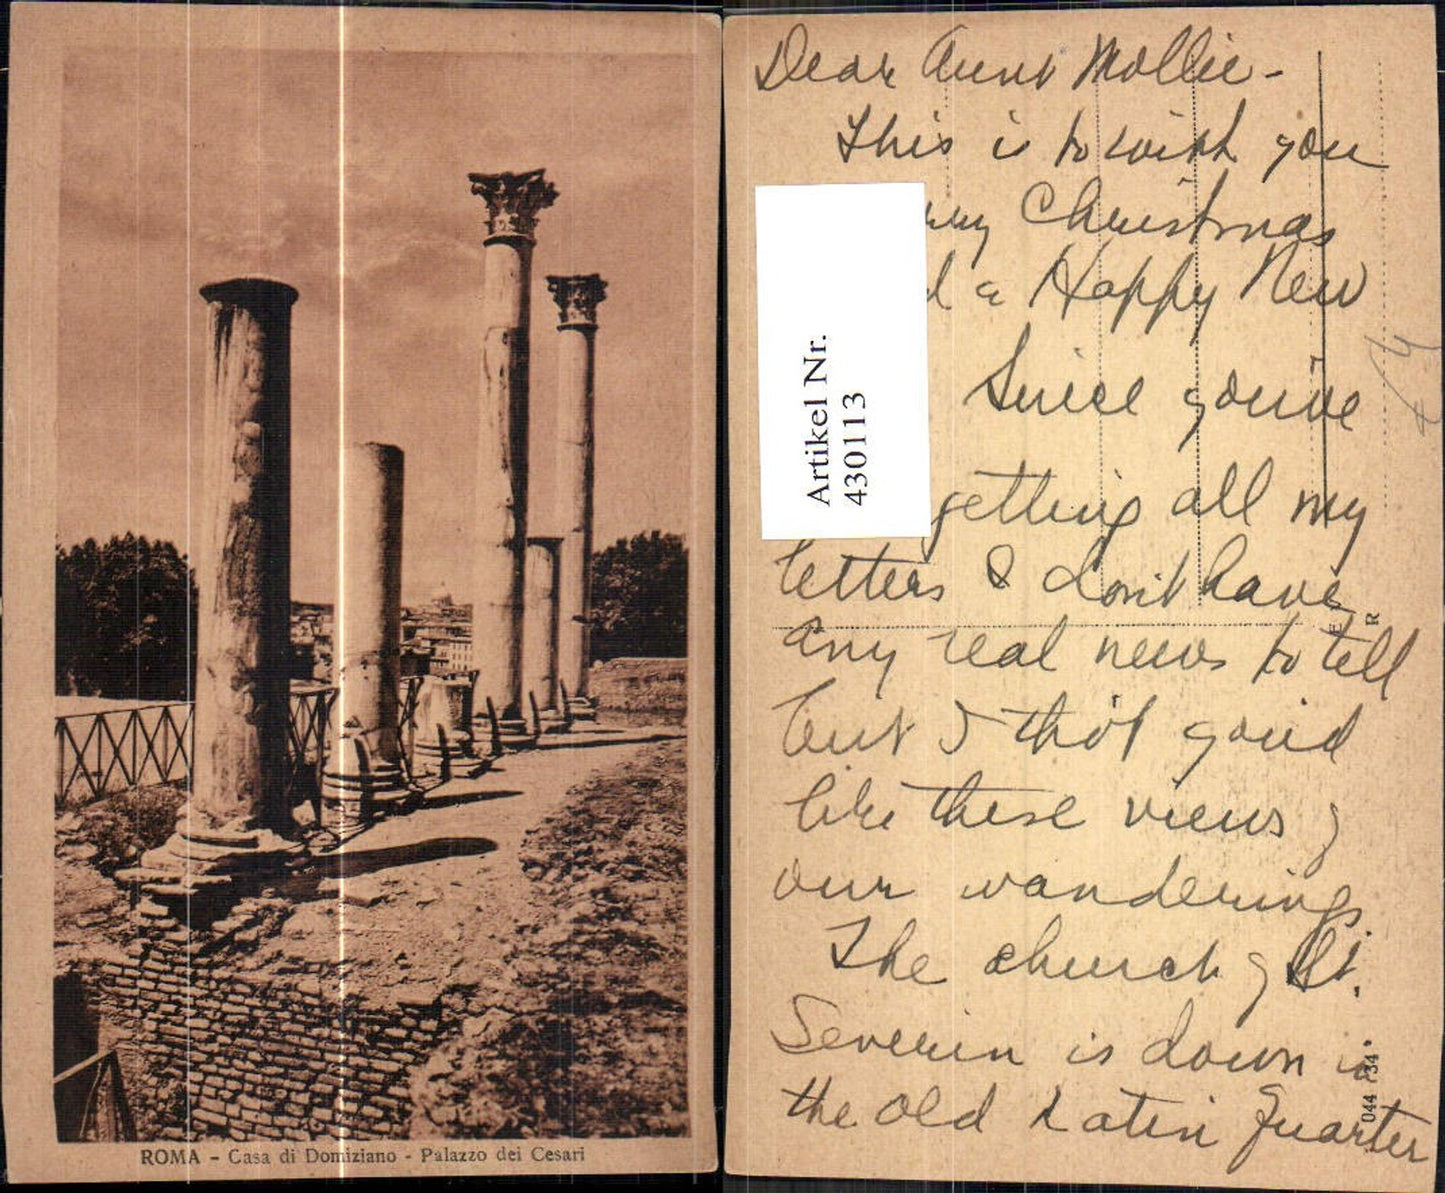 ROMA - Casa di Domiziano - Palazzo dei Cesari
Dear Aunt Mollie -
This is to wish you
Christmas
a Happy New
Since you've
getting all my
letters & don't have
any real news to tell
but I tho't you'd
like these views of
our wanderings.
The church of St.
Severin is down in
the old Latin Quarter
Artikel Nr.
430113
E
R
044 134